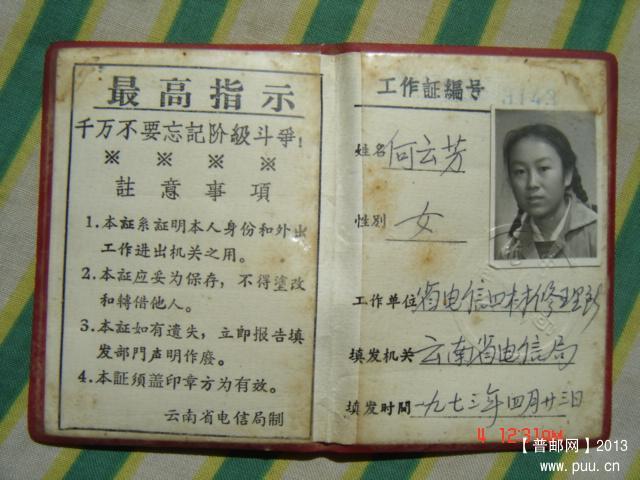 最高指示
千万不要忘記阶級斗爭!
※ ※ ※ ※
註意事項
1.本証系証明本人身份和外出
工作进出机关之用。
2.本証应妥为保存，不得塗改
和轉借他人。
3.本証如有遺失，立即报告填
发部門声明作廢。
4.本証须盖印章方为有效。
云南省电信局制
工作証編号
3143
姓名 何云芳
性别 女
工作单位 省电信四材修理所
填发机关 云南省电信局
填发时間 一九七三年四月廿三日
4 12:31PM
【普邮网】2013
www.puu.cn